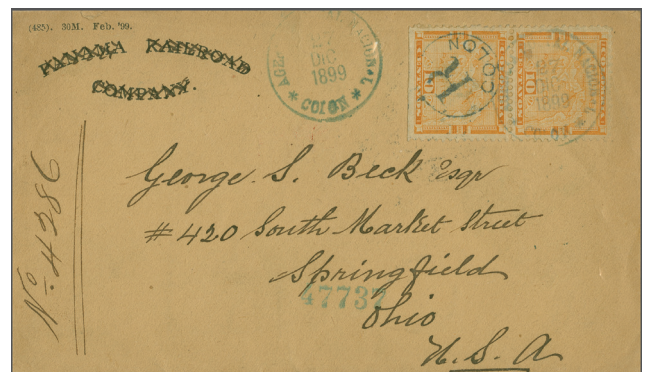 (485). 30M. Feb. '99.
PANAMA RAILROAD
COMPANY.
27
DIC
1899
* COLON *
COLON
R
10
10
27
DIC
1899
No. 4286
George. S. Beck Esqr
#420 South Market Street
Springfield
47737
Ohio
U.S.A